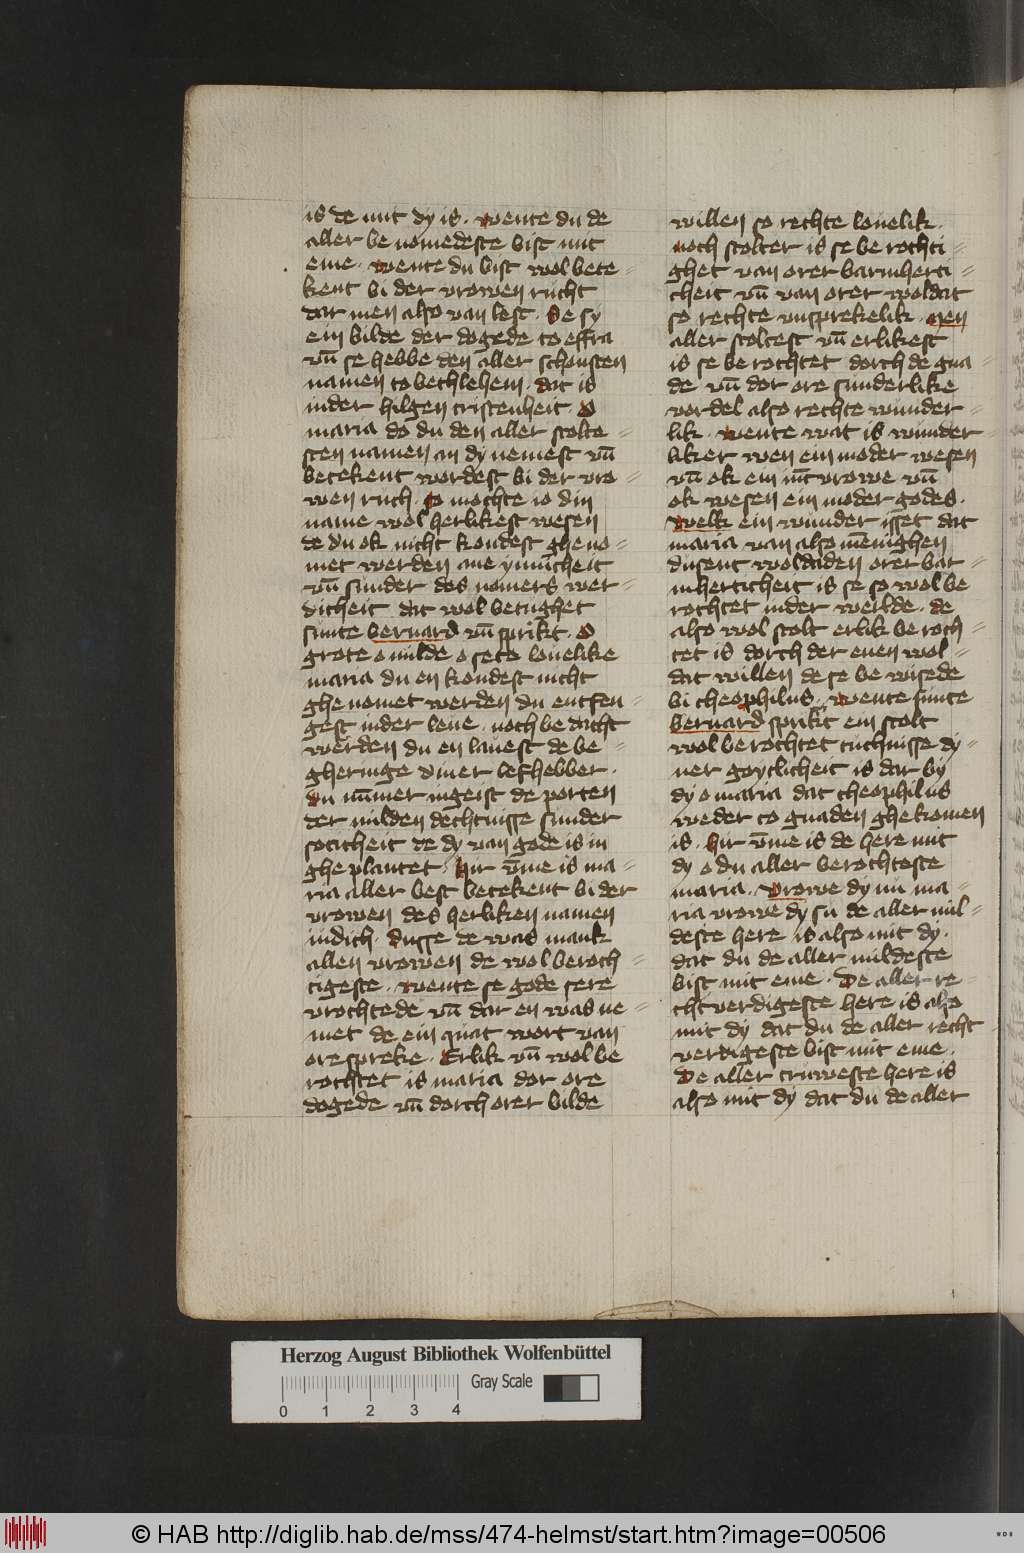 is de mit dy is. wente du de
aller be nomedeste bist mit
eme. wente du bist wol bete=
kent bi der vrowen rucht
dar men also van lest. De sy
ein bilde der dogede to effra
vn̄ se hebbe den aller schonsten
namen to bethlehem. dat is
inder hilgen cristenheit. O
maria do du den aller stolte=
sten namen an dy nemest vn̄
betekent wordest bi der vro=
wen ruch. so mochte io din
name wol herlikest wesen
de du ok nicht kondest gheno=
met werden ane ynnicheit
vn̄ sunder des nomers wer=
dicheit dat wol betughet
sunte bernard vn̄ sprikt. O
grote o milde o sete louelike
maria du en kondest nicht
ghenomet werden du entfen=
gest inder leue. noch be dacht
werden du en lauest de be=
gheringe diner lefhebber.
du nūmer ingeist de porten
der milden dechtnisse sunder
soticheit de dy van gode is in
ghe plantet. Hir v̄me is ma=
ria aller best betekent bi der
vrowen des herliken namen
iudich. dusse de was mank
allen vrowen de wol beroch=
tigeste. wente se gode sere
vrochtede vn̄ dar en was ne=
met de ein quat wort van
ore spreke. Erlik vn̄ wol be
rochtet is maria dor ore
dogede vn̄ dorch orer bilde
willen so rechte louelik.
noch stolter is se be rochti=
ghet van orer barmherti=
cheit vn̄ van orer woldat
so rechte vnsprekelik. Men
aller stoltest vn̄ erlikest
is se be rochtet dorch de gna=
de vn̄ dor ore sunderlike
vordel also rechte wunder=
lik. wente wat is wunder
liker wen ein moder wesen
vn̄ ok ein iūcvrowe vn̄
ok wesen ein moder godes.
Welk ein wunder isset dat
maria van also mēnighen
dusent woldaden orer bar=
mherticheit is se so wol be
rochtet inder werlde. de
also wol stolt erlik be roch=
tet is dorch der enen wol=
dat willen de se be wisede
bi theophilus. wente sunte
bernard sprikt ein stolt
wol be rochtet tuchnisse dy=
ner gotlicheit is dar by
dy o maria dat theophilus
weder to gnaden ghekomen
is. Hir v̄me is de here mit
dy o du aller berochteste
maria. Vrowe dy nu ma=
ria vrowe dy su de aller mil=
deste here is also mit dy.
dat du de aller mildeste
bist mit eme. De aller re=
cht verdigeste here is also
mit dy dat du de aller recht
verdigeste bist mit eme.
De aller truweste here is
also mit dy dat du de aller
Herzog August Bibliothek Wolfenbüttel
Gray Scale
0 1 2 3 4
© HAB http://diglib.hab.de/mss/474-helmst/start.htm?image=00506